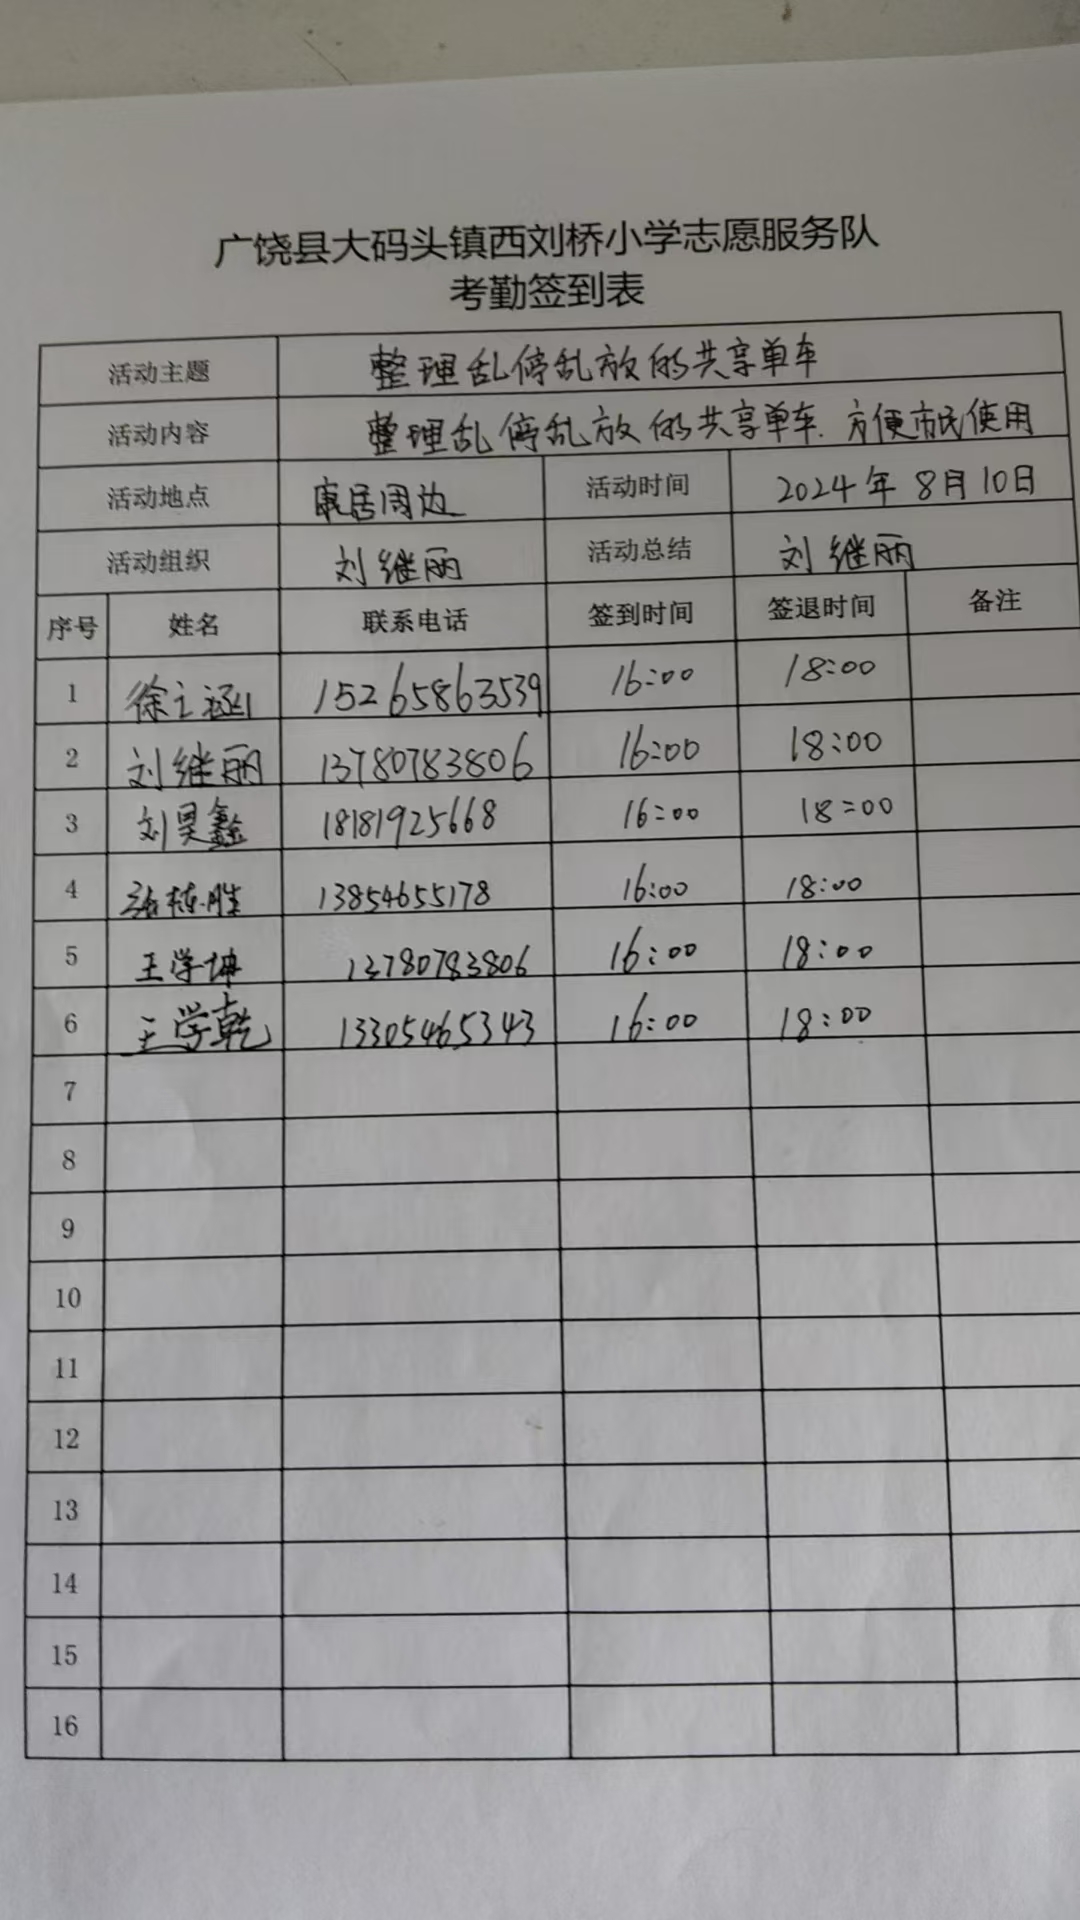 广饶县大码头镇西刘桥小学志愿服务队
考勤签到表
活动主题 整理乱停乱放的共享单车
活动内容 整理乱停乱放的共享单车.方便市民使用
活动地点 康居周边 活动时间 2024年8月10日
活动组织 刘继丽 活动总结 刘继丽
序号 姓名 联系电话 签到时间 签退时间 备注
1 徐之涵 15265863539 16:00 18:00
2 刘继丽 13780783806 16:00 18:00
3 刘昊鑫 18181925668 16:00 18:00
4 13854655178 16:00 18:00
5 王学坤 13780783806 16:00 18:00
6 王学乾 13305465343 16:00 18:00
7
8
9
10
11
12
13
14
15
16